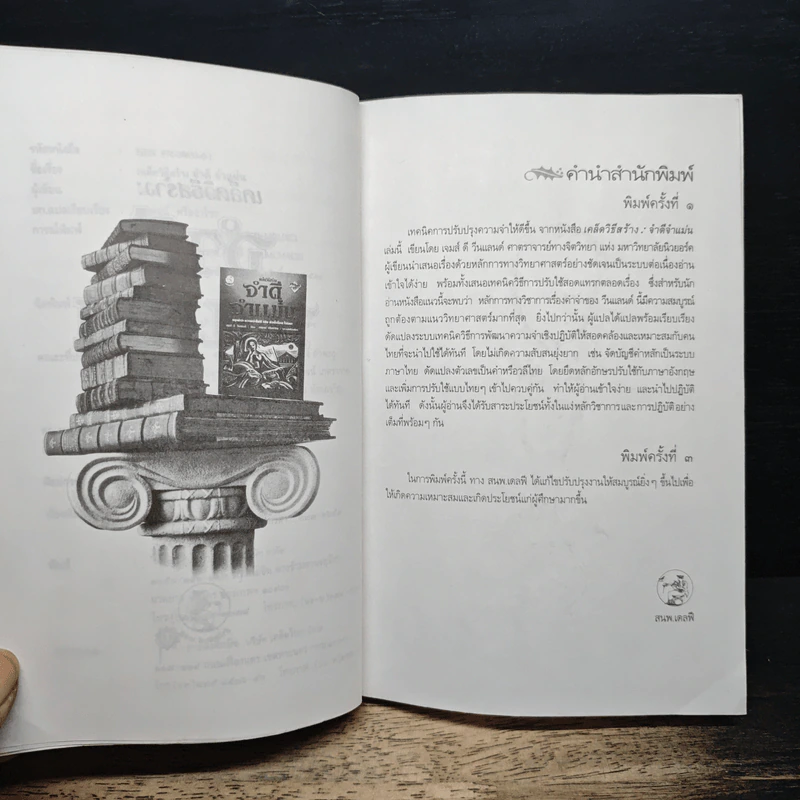 จำดี
จำแม่น
คำนำสำนักพิมพ์
พิมพ์ครั้งที่ ๑
เทคนิคการปรับปรุงความจำให้ดีขึ้น จากหนังสือ เคล็ดวิธีสร้าง : จำดีจำแม่น
เล่มนี้ เขียนโดย เจมส์ ดี วีนแลนด์ ศาตราจารย์ทางจิตวิทยา แห่ง มหาวิทยาลัยนิวยอร์ค
ผู้เขียนนำเสนอเรื่องด้วยหลักการทางวิทยาศาสตร์อย่างชัดเจนเป็นระบบต่อเนื่องอ่าน
เข้าใจได้ง่าย พร้อมทั้งเสนอเทคนิควิธีการปรับใช้สอดแทรกตลอดเรื่อง ซึ่งสำหรับนัก
อ่านหนังสือแนวนี้จะพบว่า หลักการทางวิชาการเรื่องคำจำของ วีนแลนด์ นี้มีความสมบูรณ์
ถูกต้องตามแนววิทยาศาสตร์มากที่สุด ยิ่งไปกว่านั้น ผู้แปลได้แปลพร้อมเรียบเรียง
ดัดแปลงระบบเทคนิควิธีการพัฒนาความจำเชิงปฏิบัติให้สอดคล้องและเหมาะสมกับคน
ไทยที่จะนำไปใช้ได้ทันที โดยไม่เกิดความสับสนยุ่งยาก เช่น จัดบัญชีคำหลักเป็นระบบ
ภาษาไทย ดัดแปลงตัวเลขเป็นคำหรือวลีไทย โดยยึดหลักอักษรปรับใช้กับภาษาอังกฤษ
และเพิ่มการปรับใช้แบบไทยๆ เข้าไปควบคู่กัน ทำให้ผู้อ่านเข้าใจง่าย และนำไปปฏิบัติ
ได้ทันที ดังนั้นผู้อ่านจึงได้รับสาระประโยชน์ทั้งในแง่หลักวิชาการและการปฏิบัติอย่าง
เต็มที่พร้อมๆ กัน
พิมพ์ครั้งที่ ๓
ในการพิมพ์ครั้งนี้ ทาง สนพ.เดลฟี ได้แก้ไขปรับปรุงงานให้สมบูรณ์ยิ่งๆ ขึ้นไปเพื่อ
ให้เกิดความเหมาะสมและเกิดประโยชน์แก่ผู้ศึกษามากขึ้น
สนพ.เดลฟี